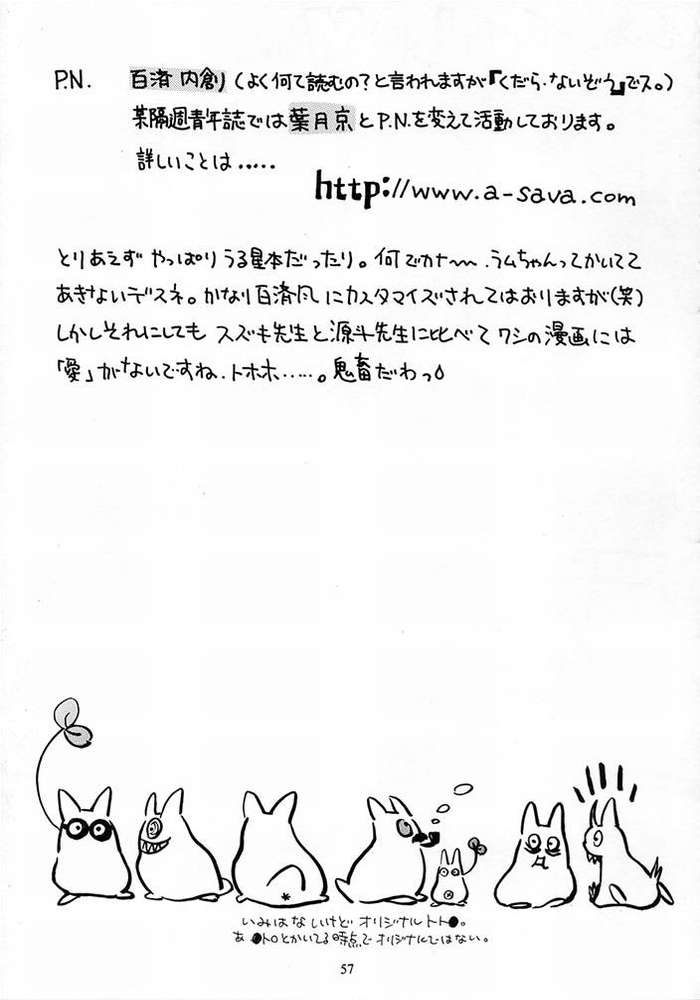 P.N. 百済 内創 (よく何て読むの?と言われますが『くだら・ないぞう』でス。)
某隔週青年誌では葉月京とP.N.を変えて活動しております。
詳しいことは.....
http://www.a-sava.com
とりあえず やっぱりうる星本だったり。何でカナ〜〜.ラムちゃんってかいてて
あきないデスネ。かなり百済風にカスタマイズされてはおりますが(笑)
しかしそれにしても スズキ先生と源斗先生に比べて ワシの漫画には
「愛」がないですね.トホホ.....。鬼畜だわっ
いみはないけど オリジナルトト●。
あ ●トロとかいてる時点でオリジナルではない。
57